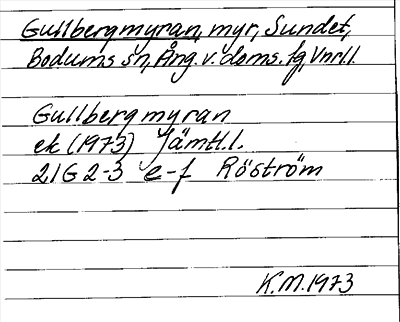 Gullbergmyran, myr, Sundet,
Bodums sn, Ång. v. doms. lg, Vnrl.l.
Gullbergmyran
ek (1973) Jämtl.l.
21G 2-3 e-f Röström
K.M. 1973